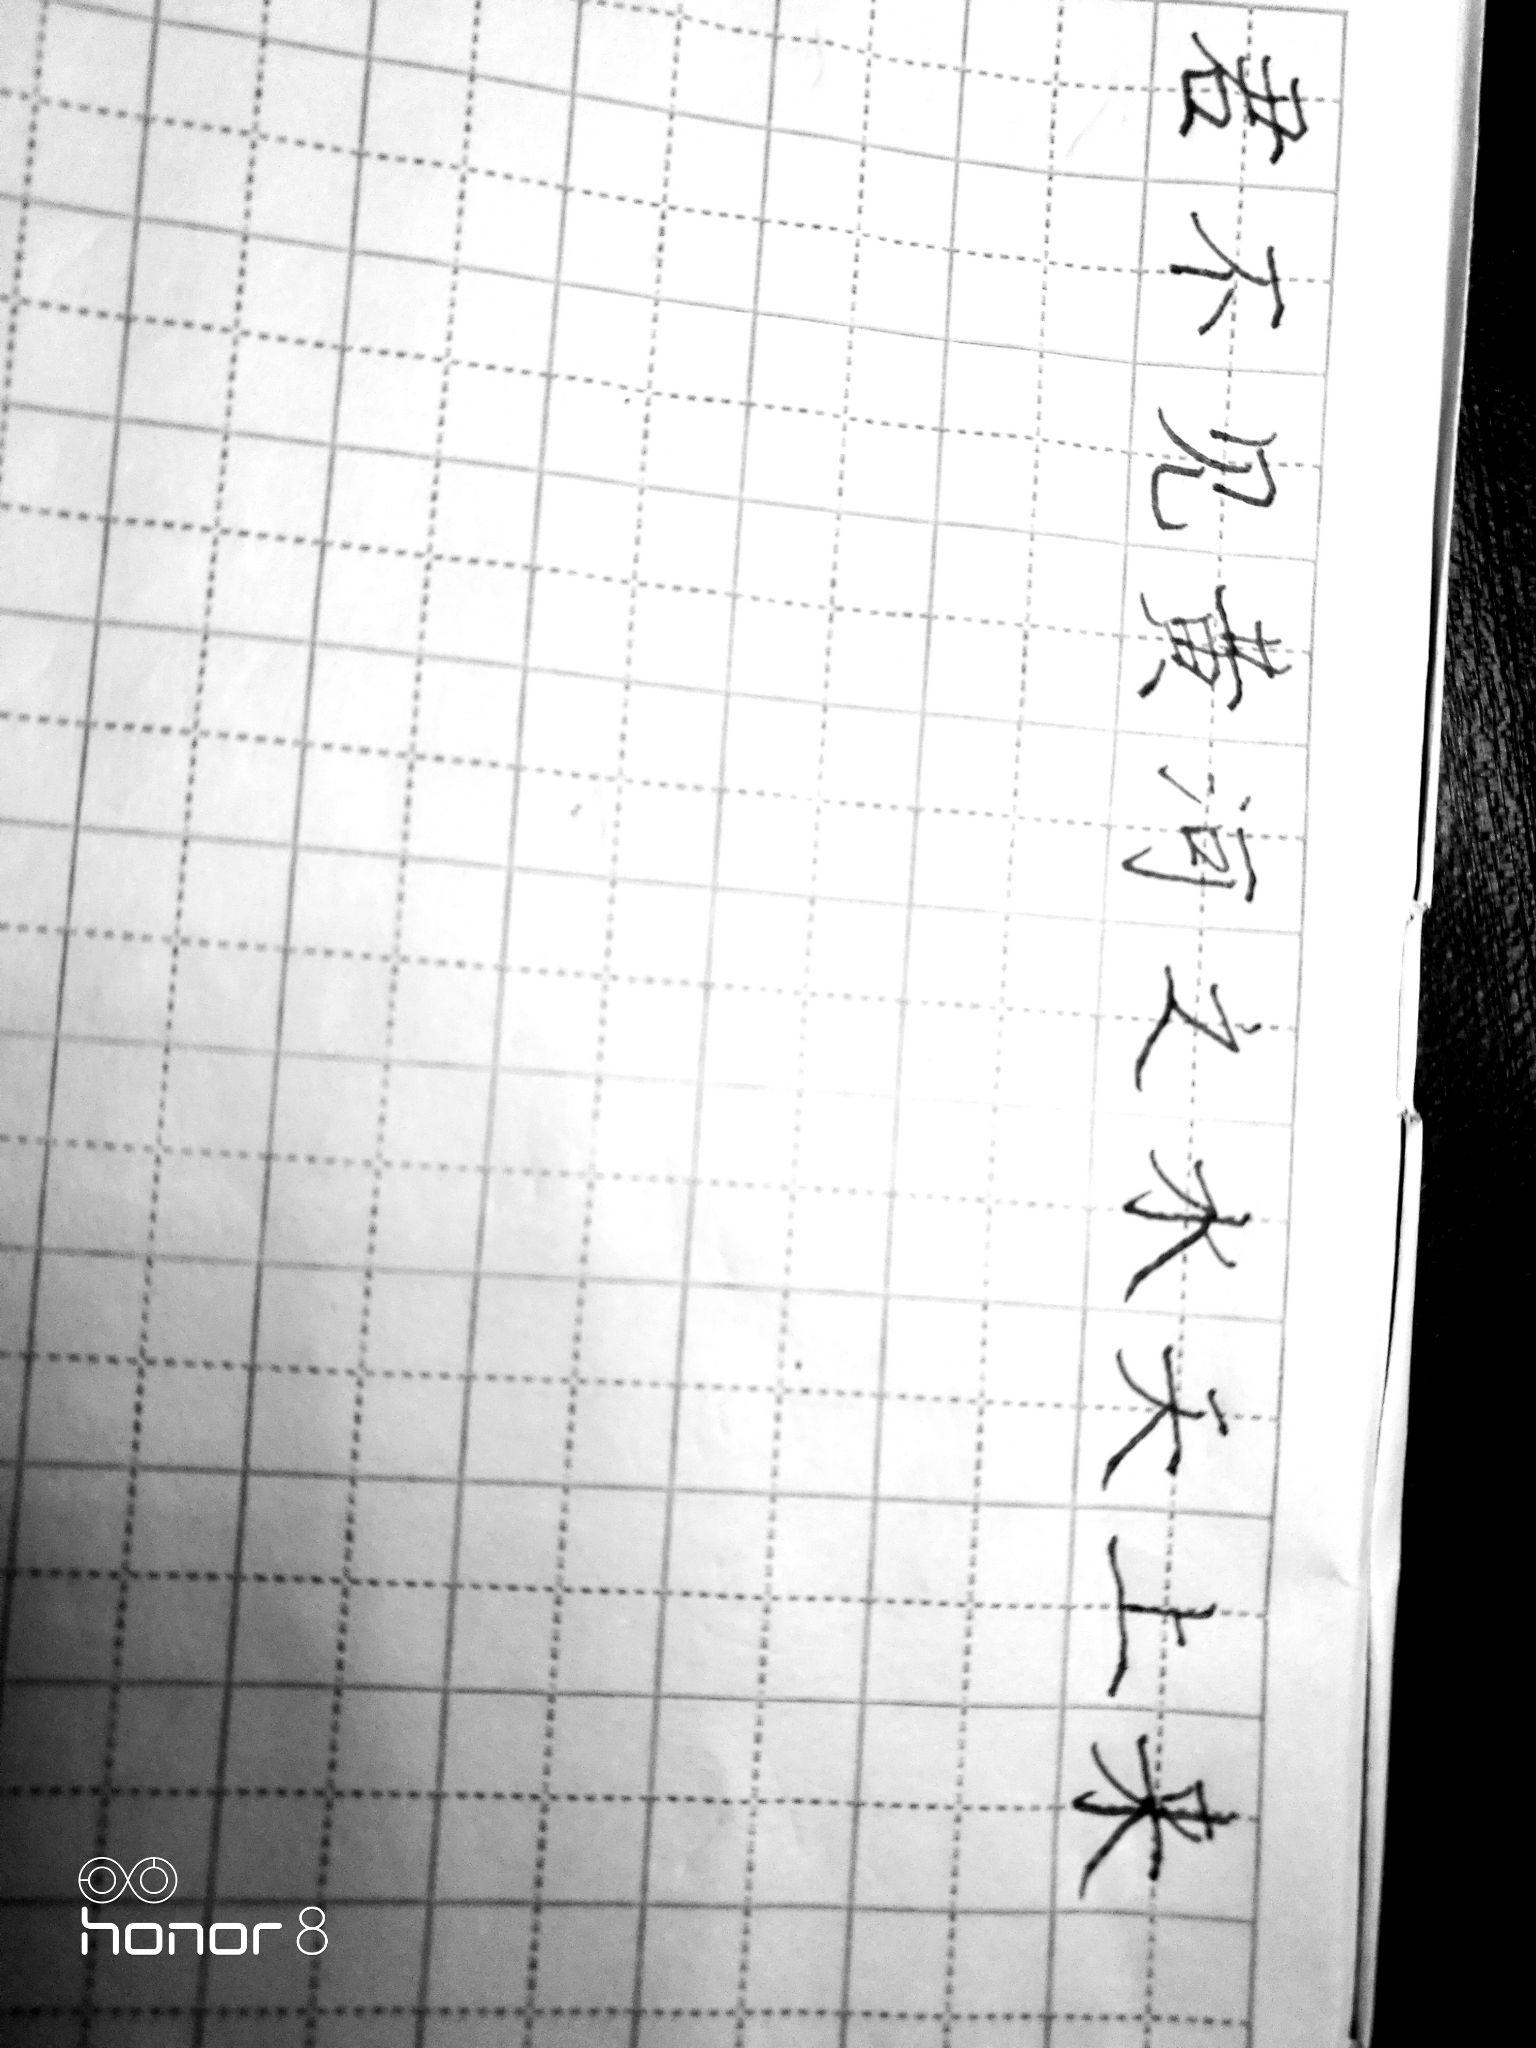 君不见黄河之水天上来
honor 8